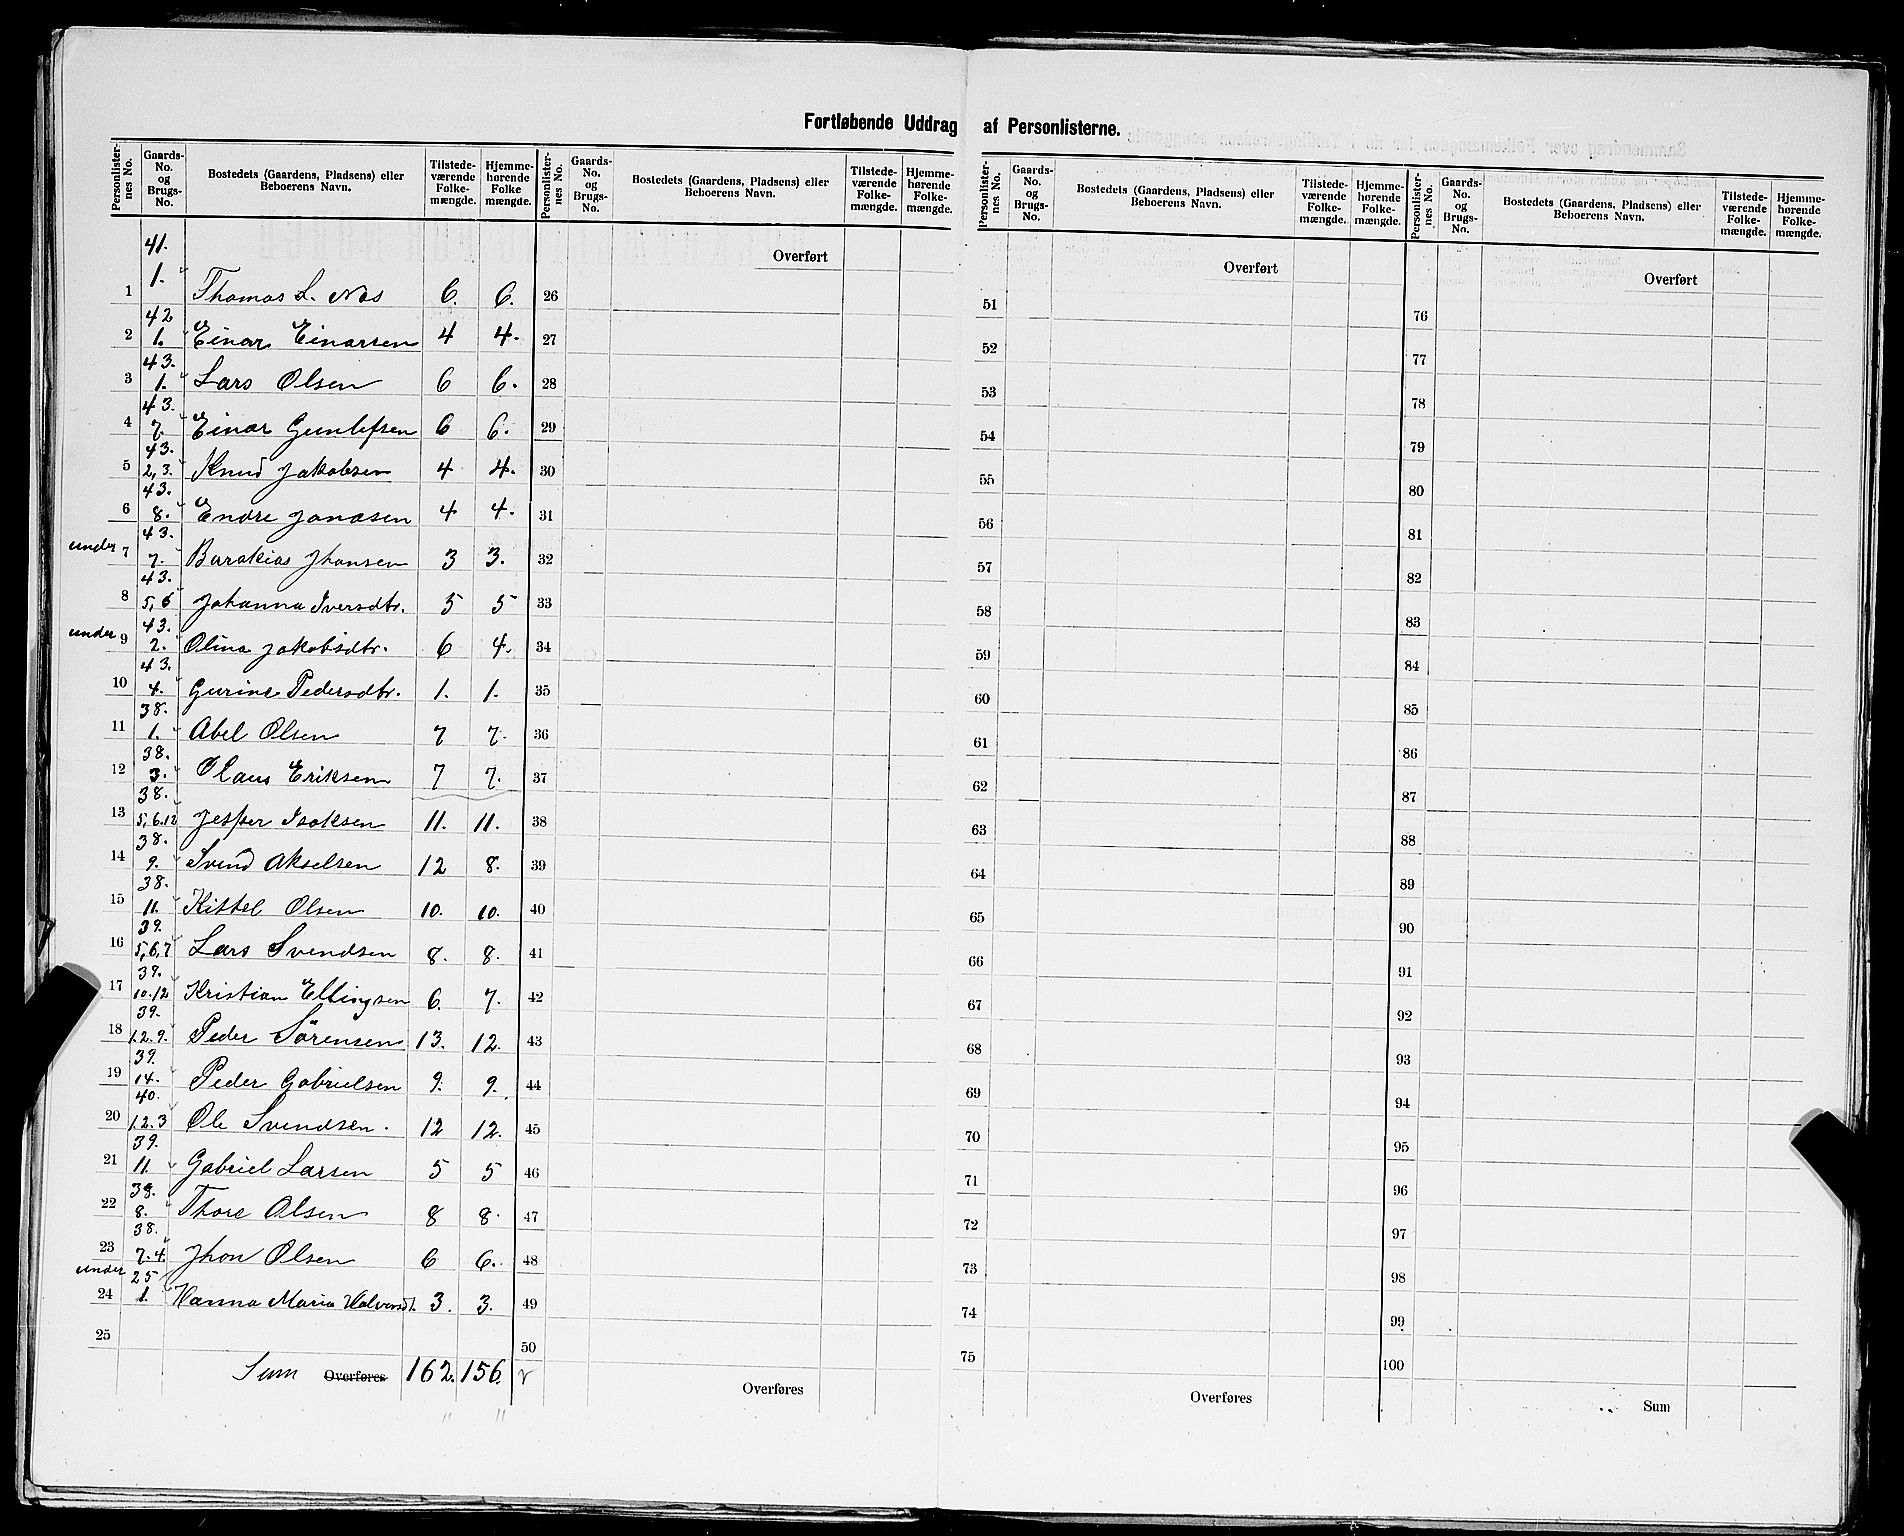 Fortløbende Uddrag af Personlisterne.
Personlister-nes No. | Gaards-No. og Brugs-No. | Bostedets (Gaardens, Pladsens) eller Beboerens Navn. | Tilstede-værende Folke-mængde. | Hjemme-hørende Folke mængde.
Personlister-nes No. | Gaards-No. og Brugs-No. | Bostedets (Gaardens, Pladsens) eller Beboerens Navn. | Tilstede-værende Folke-mængde. | Hjemme-hørende Folke-mængde.
Personlister-nes No. | Gaards-No. og Brugs-No. | Bostedets (Gaardens, Pladsens) eller Beboerens Navn. | Tilstede-værende Folke-mængde. | Hjemme-hørende Folke-mængde.
Personlister-nes No. | Gaards-No. og Brugs-No. | Bostedets (Gaardens, Pladsens) eller Beboerens Navn. | Tilstede-værende Folke-mængde. | Hjemme-hørende Folke-mængde.
1 41. 1. Thomas L. Nes 6. 6.
2 42 1. Einar Einarsen 4 4.
3 43. 1. Lars Olsen 6 6.
4 43. 7. Einar Gunlefsen 6 6.
5 43. 2,3. Knud Jakobsen 4 4.
6 43. 8. Endre Jonasen 4 4.
under 7 43. 7. Barakias Jhansen 3 3.
8 43. 5,6 Johanna Iversdtr. 5 5
under 9 43. 2. Olina Jakobsdtr. 6 4.
10 43. 4. Gurine Pedersdtr. 1. 1.
11 38. 1. Abel Olsen 7 7.
12 38. 3. Olaus Eriksen 7 7.
13 38. 5,6.12 Jesper Isaksen 11. 11.
14 38. 9. Svend Akselsen 12 8.
15 38. 11. Kittel Olsen 10. 10.
16 39. 5,6,7 Lars Svendsen 8. 8.
17 39. 10.12 Kristian Ellingsen 6. 7.
18 39. 1.2.9. Peder Sörensen 13. 12.
19 39. 14. Peder Gabrielsen 9. 9.
20 40. 1.2.3 Ole Svendsen. 12 12.
21 39. 11. Gabriel Larsen 5 5
22 38. 8. Thore Olsen 8 8.
23 38. 7.4. Jhon Olsen 6 6.
under
24 25 1. Hanna Maria Halvorsdt. 3. 3.
25
Sum Overføres 162. 156.
Overført
26
27
28
29
30
31
32
33
34
35
36
37
38
39
40
41
42
43
44
45
46
47
48
49
50
Overføres
Overført
51
52
53
54
55
56
57
58
59
60
61
62
63
64
65
66
67
68
69
70
71
72
73
74
75
Overføres
Overført
76
77
78
79
80
81
82
83
84
85
86
87
88
89
90
91
92
93
94
95
96
97
98
99
100
Sum